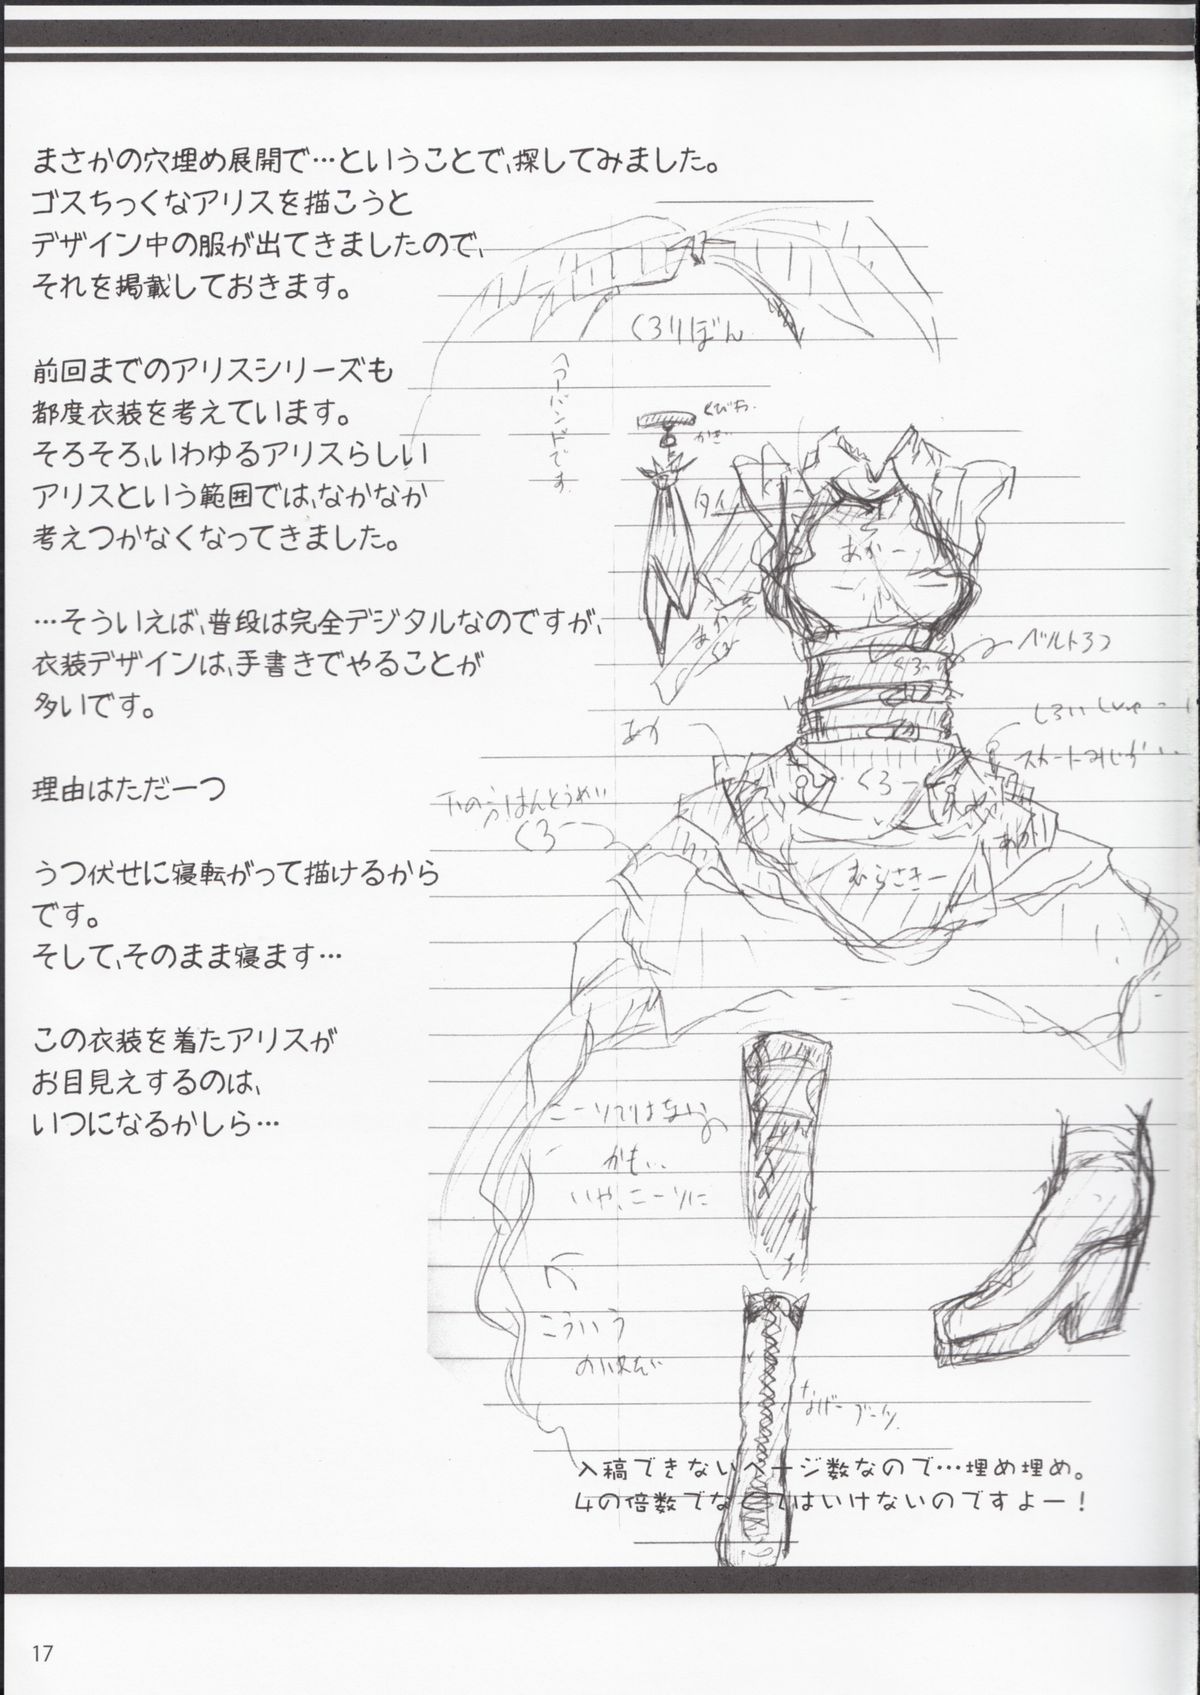 まさかの穴埋め展開で…ということで、探してみました。
ゴスちっくなアリスを描こうと
デザイン中の服が出てきましたので、
それを掲載しておきます。
前回までのアリスシリーズも
都度衣装を考えています。
そろそろ、いわゆるアリスらしい
アリスという範囲では、なかなか
考えつかなくなってきました。
…そういえば、普段は完全デジタルなのですが、
衣装デザインは、手書きでやることが
多いです。
理由はただ一つ
うつ伏せに寝転がって描けるから
です。
そして、そのまま寝ます…
この衣装を着たアリスが
お目見えするのは、
いつになるかしら…
くろりぼん
ヘアーバンドです
くびわ
かぎ
タイ
あかー
あか
くろ
ベルト3つ
くろー
あか
しろい
スカートみじかい
くろー
下のうはんとうめい
くろー
あか
むらさきー
ニーソではない
かも..
いや、ニーソに
こういう
なげーブーツ
入稿できないページ数なので…埋め埋め。
4の倍数でなくてはいけないのですよー!
17